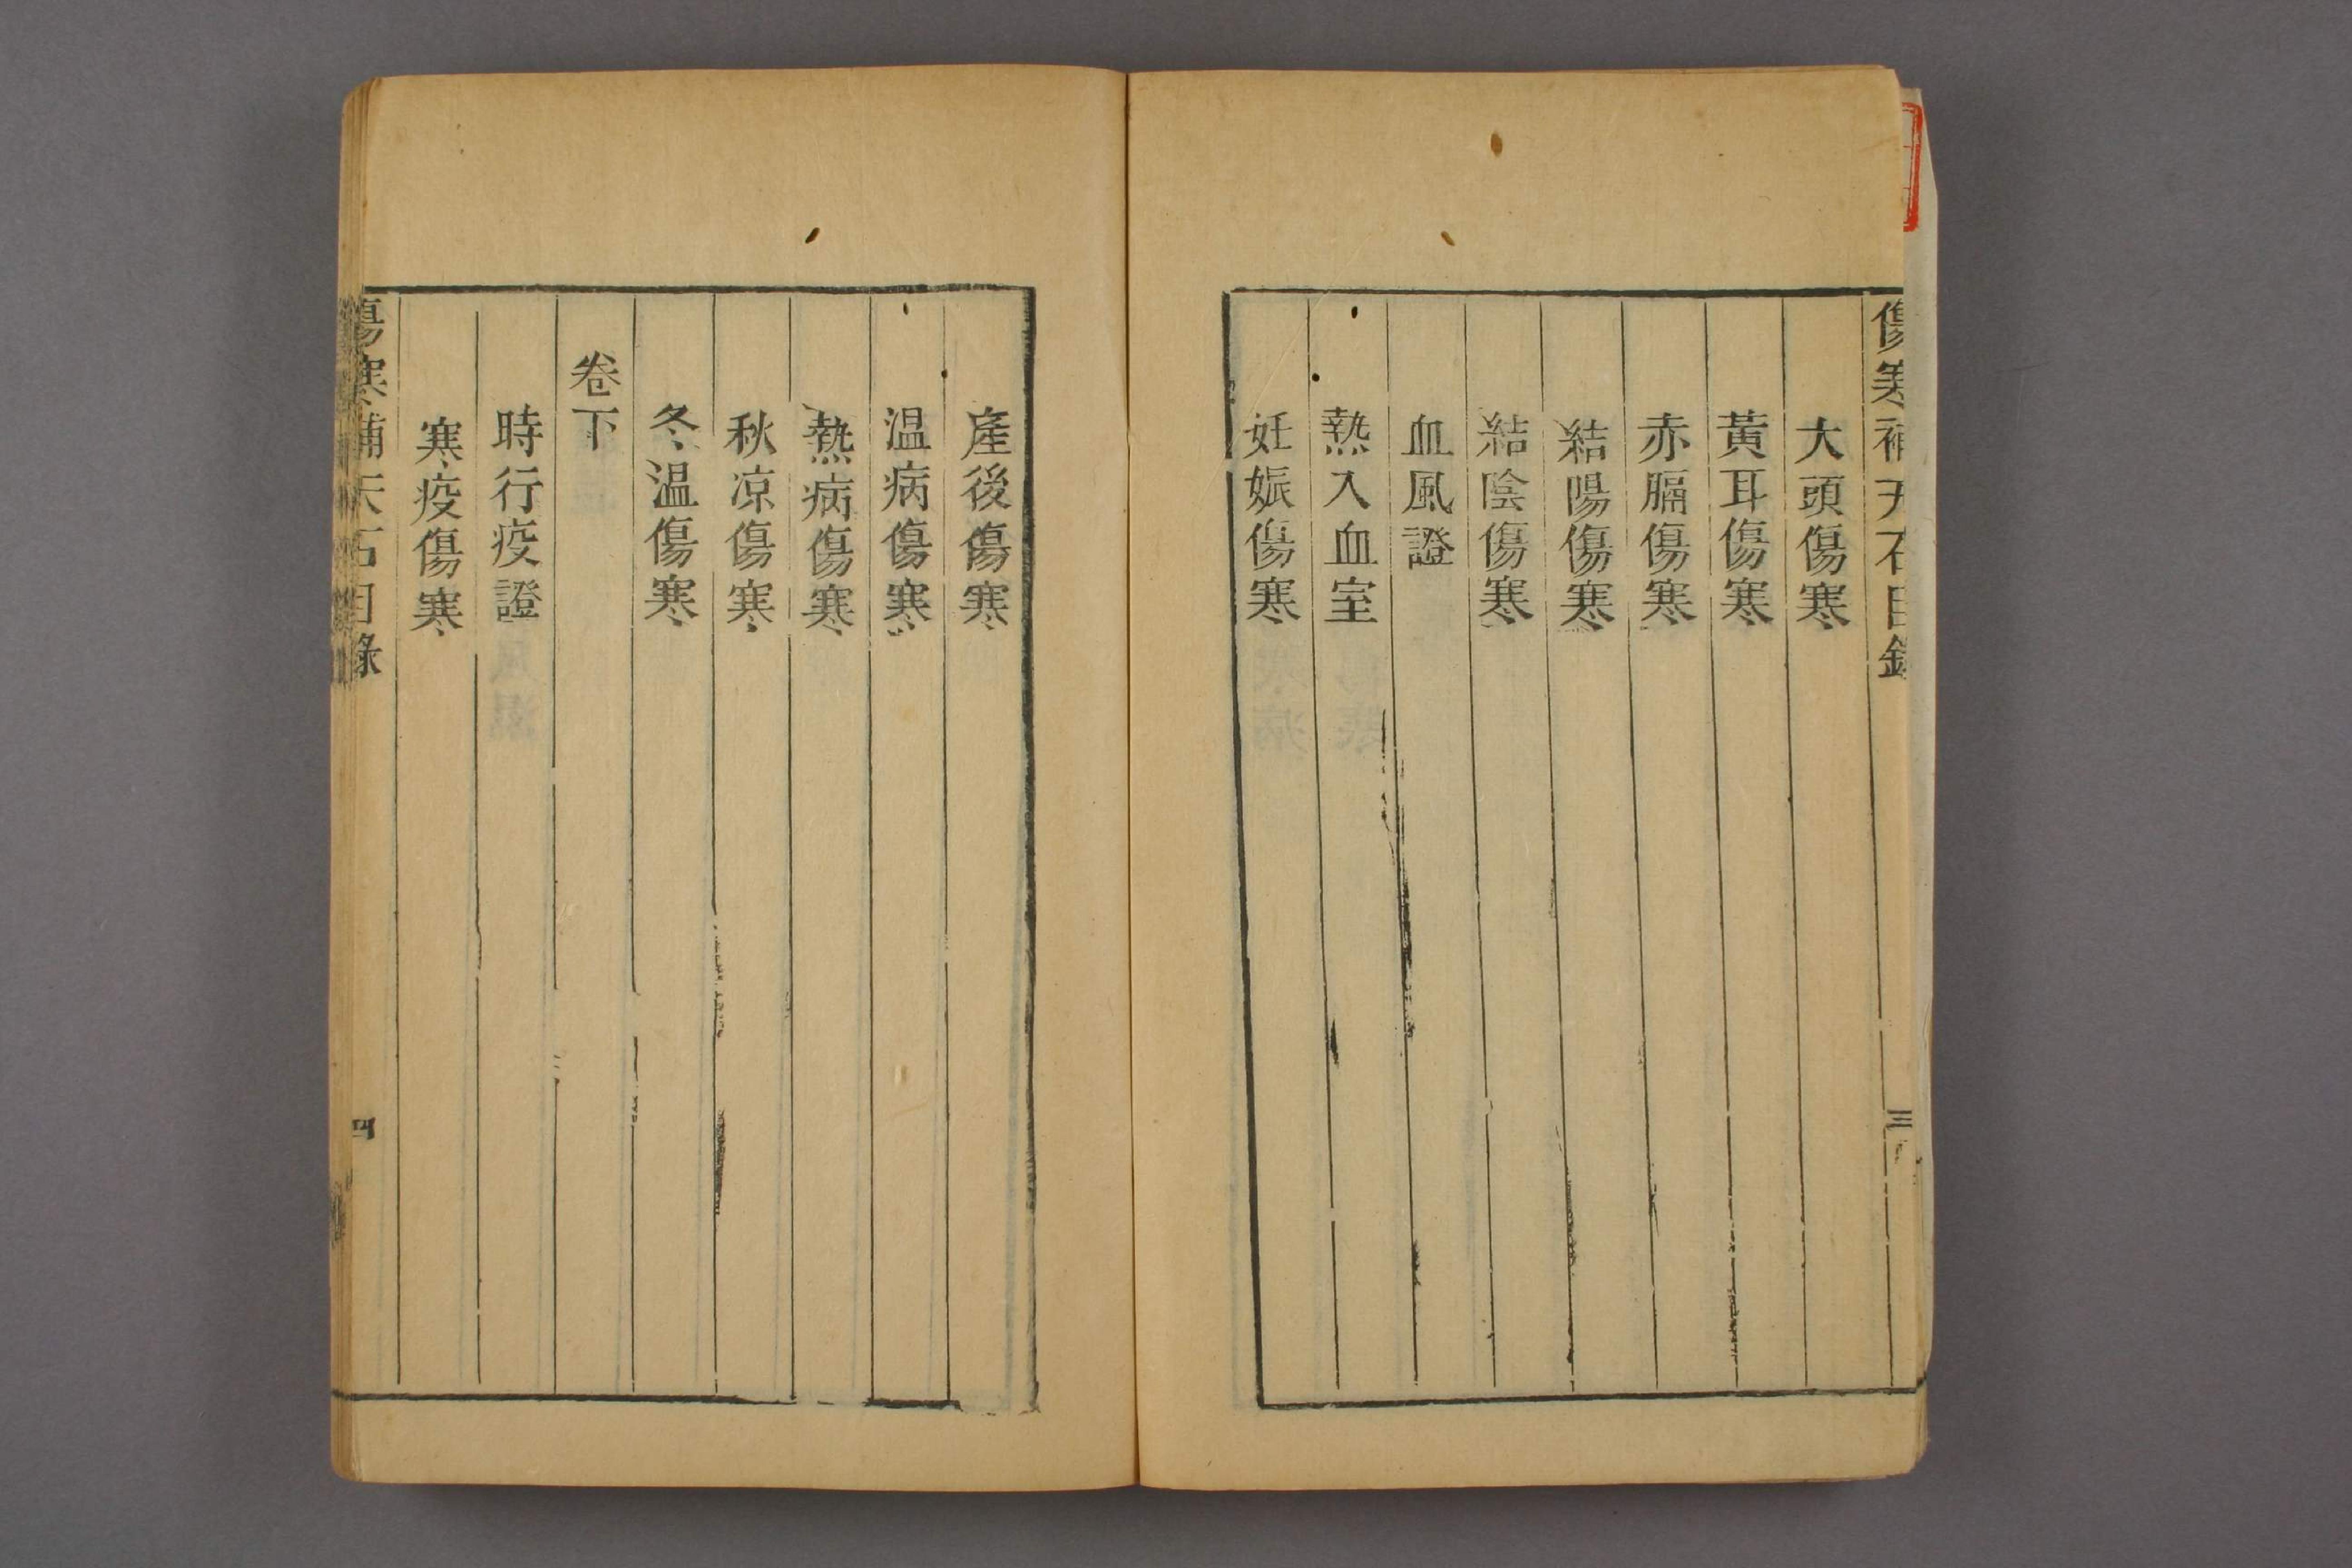 傷寒補天石目錄
三
大頭傷寒
黃耳傷寒
赤膈傷寒
結陽傷寒
結陰傷寒
血風證
熱入血室
妊娠傷寒
產後傷寒
温病傷寒
熱病傷寒
秋凉傷寒
冬温傷寒
卷下
時行疫證
寒疫傷寒
傷寒補天石目錄
四